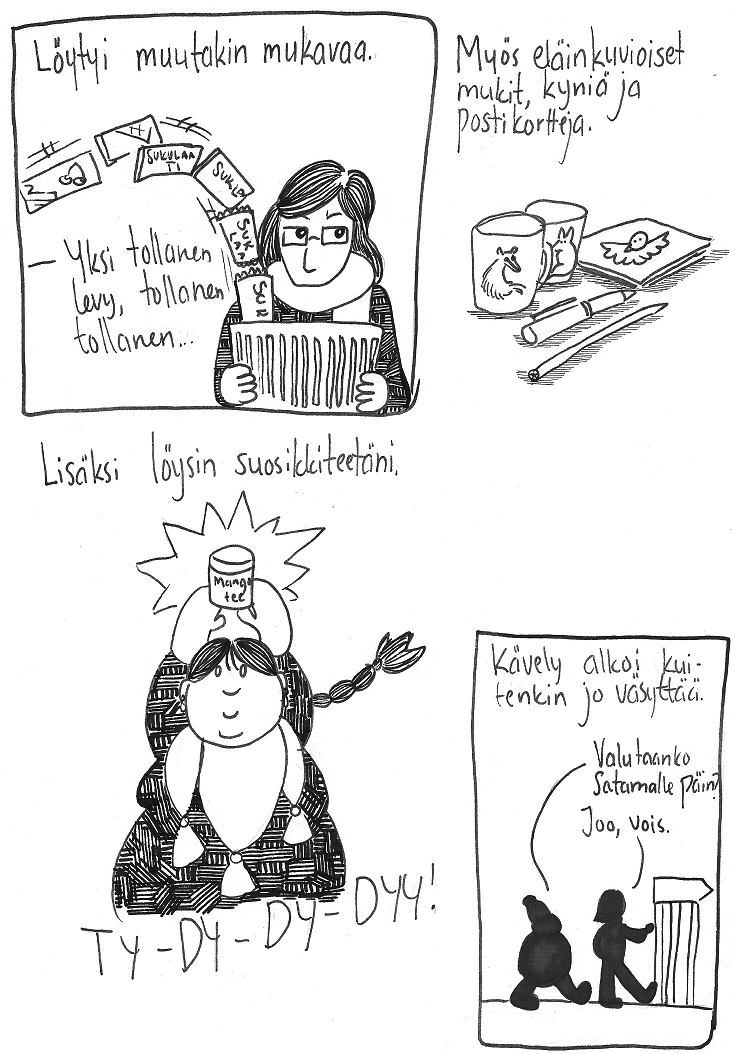 Löytyi muutakin mukavaa.
SUKULAA
TI
SUKLA
- Yksi tollanen
levy, tollanen
tollanen...
Myös eläinkuvioiset
mukit, kyniä ja
postikortteja.
Lisäksi löysin suosikkiteetäni.
Mango
tee
TY-DY-DY-DYY!
Kävely alkoi kui-
tenkin jo väsyttää.
Valutaanko
Satamalle päin?
Joo, vois.